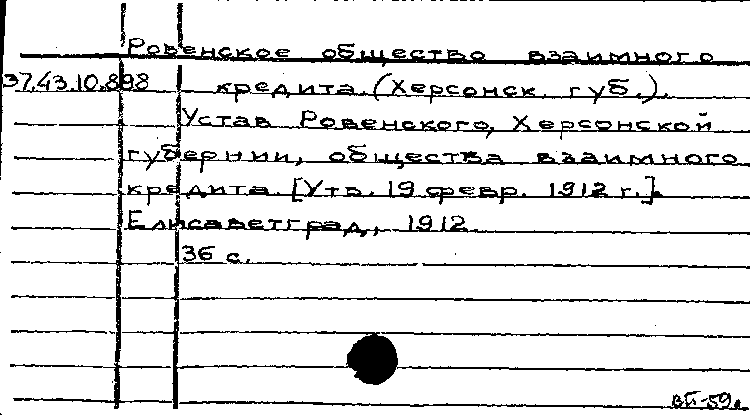 Ровенское общество взаимного
37.43.10.898 кредита (Херсонск. губ.).
Устав Ровенского, Херсонской
губернии, общества взаимного
кредита. [Утв. 19 февр. 1912 г.].
Елисаветград, 1912.
36 с.